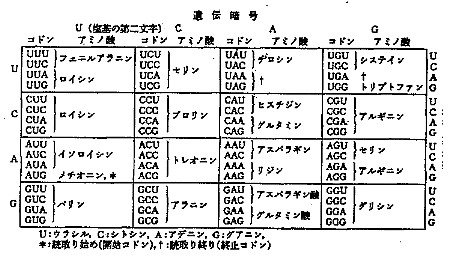 遺伝暗号
U (塩基の第二文字) C A G
コドン アミノ酸 コドン アミノ酸 コドン アミノ酸 コドン アミノ酸
U UUU フェニルアラニン UCU セリン UAU チロシン UGU システイン U
UUC UCC UAC UGC C
UUA ロイシン UCA UAA † UGA † A
UUG UCG UAG UGG トリプトファン G
C CUU ロイシン CCU プロリン CAU ヒスチジン CGU アルギニン U
CUC CCC CAC CGC C
CUA CCA CAA グルタミン CGA A
CUG CCG CAG CGG G
A AUU イソロイシン ACU トレオニン AAU アスパラギン AGU セリン U
AUC ACC AAC AGC C
AUA ACA AAA リジン AGA アルギニン A
AUG メチオニン,* ACG AAG AGG G
G GUU バリン GCU アラニン GAU アスパラギン酸 GGU グリシン U
GUC GCC GAC GGC C
GUA GCA GAA グルタミン酸 GGA A
GUG GCG GAG GGG G
U:ウラシル, C:シトシン, A:アデニン, G:グアニン,
*:読取り始め(開始コドン),†:読取り終り(終止コドン)